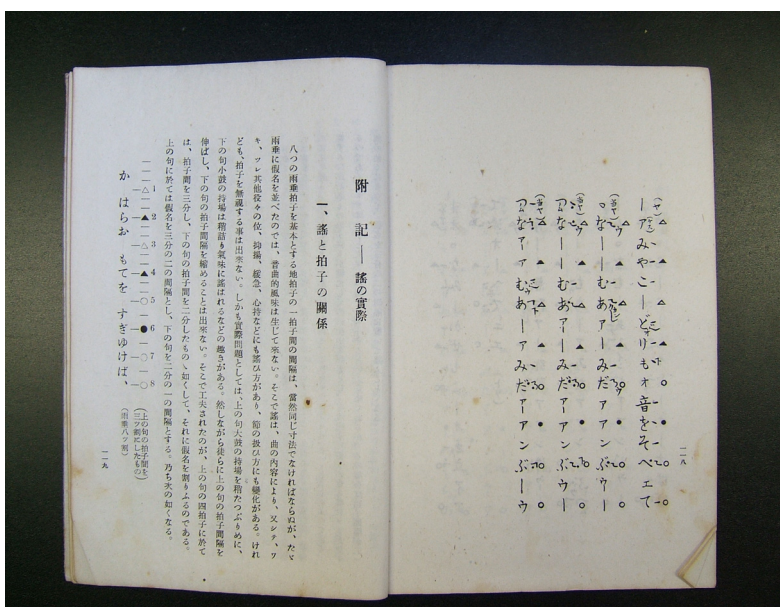 一一八
みやこーどりもオ音をそベエて
なーーむあァーみだアアンぶウー
なーーむあァーみだァーアンぶウー
なアァむあーァみだァーアンぶーウ
附記——謠の實際
一、謠と拍子の關係
八つの雨垂拍子を基本とする地拍子の一拍子間の間隔は、當然同じ寸法でなければならぬが、たゞ
雨垂に假名を並べたのでは、音曲的風味は生じて來ない。そこで謠は、曲の內容により、又シテ、ワ
キ、ツレ其他役々の位、抑揚、緩急、心持などにも謠ひ方があり、節の扱ひ方にも變化がある。けれ
ども、拍子を無視する事は出來ない。しかも實際問題としては、上の句大鼓の持場は稍たつぷりめに、
下の句小鼓の持場は稍詰り氣味に謠はれるなどの趣きがある。然しながら徒らに上の句の拍子間隔を
伸ばし、下の句の拍子間隔を縮めることは出來ない。そこで工夫されたのが、上の句の四拍子に於て
は、拍子間を三分し、下の句の拍子間を二分したものゝ如くして、それに假名を割りふるのである。
上の句に於ては假名を三分の二の間隔とし、下の句を二分の一の間隔とする。乃ち次の如くなる。
1 2 3 4 5 6 7 8
△ ▲ △ ▲ ○ ● ○ ○
(上の句の拍子間を
三ツ割にしたもの)
か はらお もてを すぎゆけば、
(雨垂八ツ割)
一一九